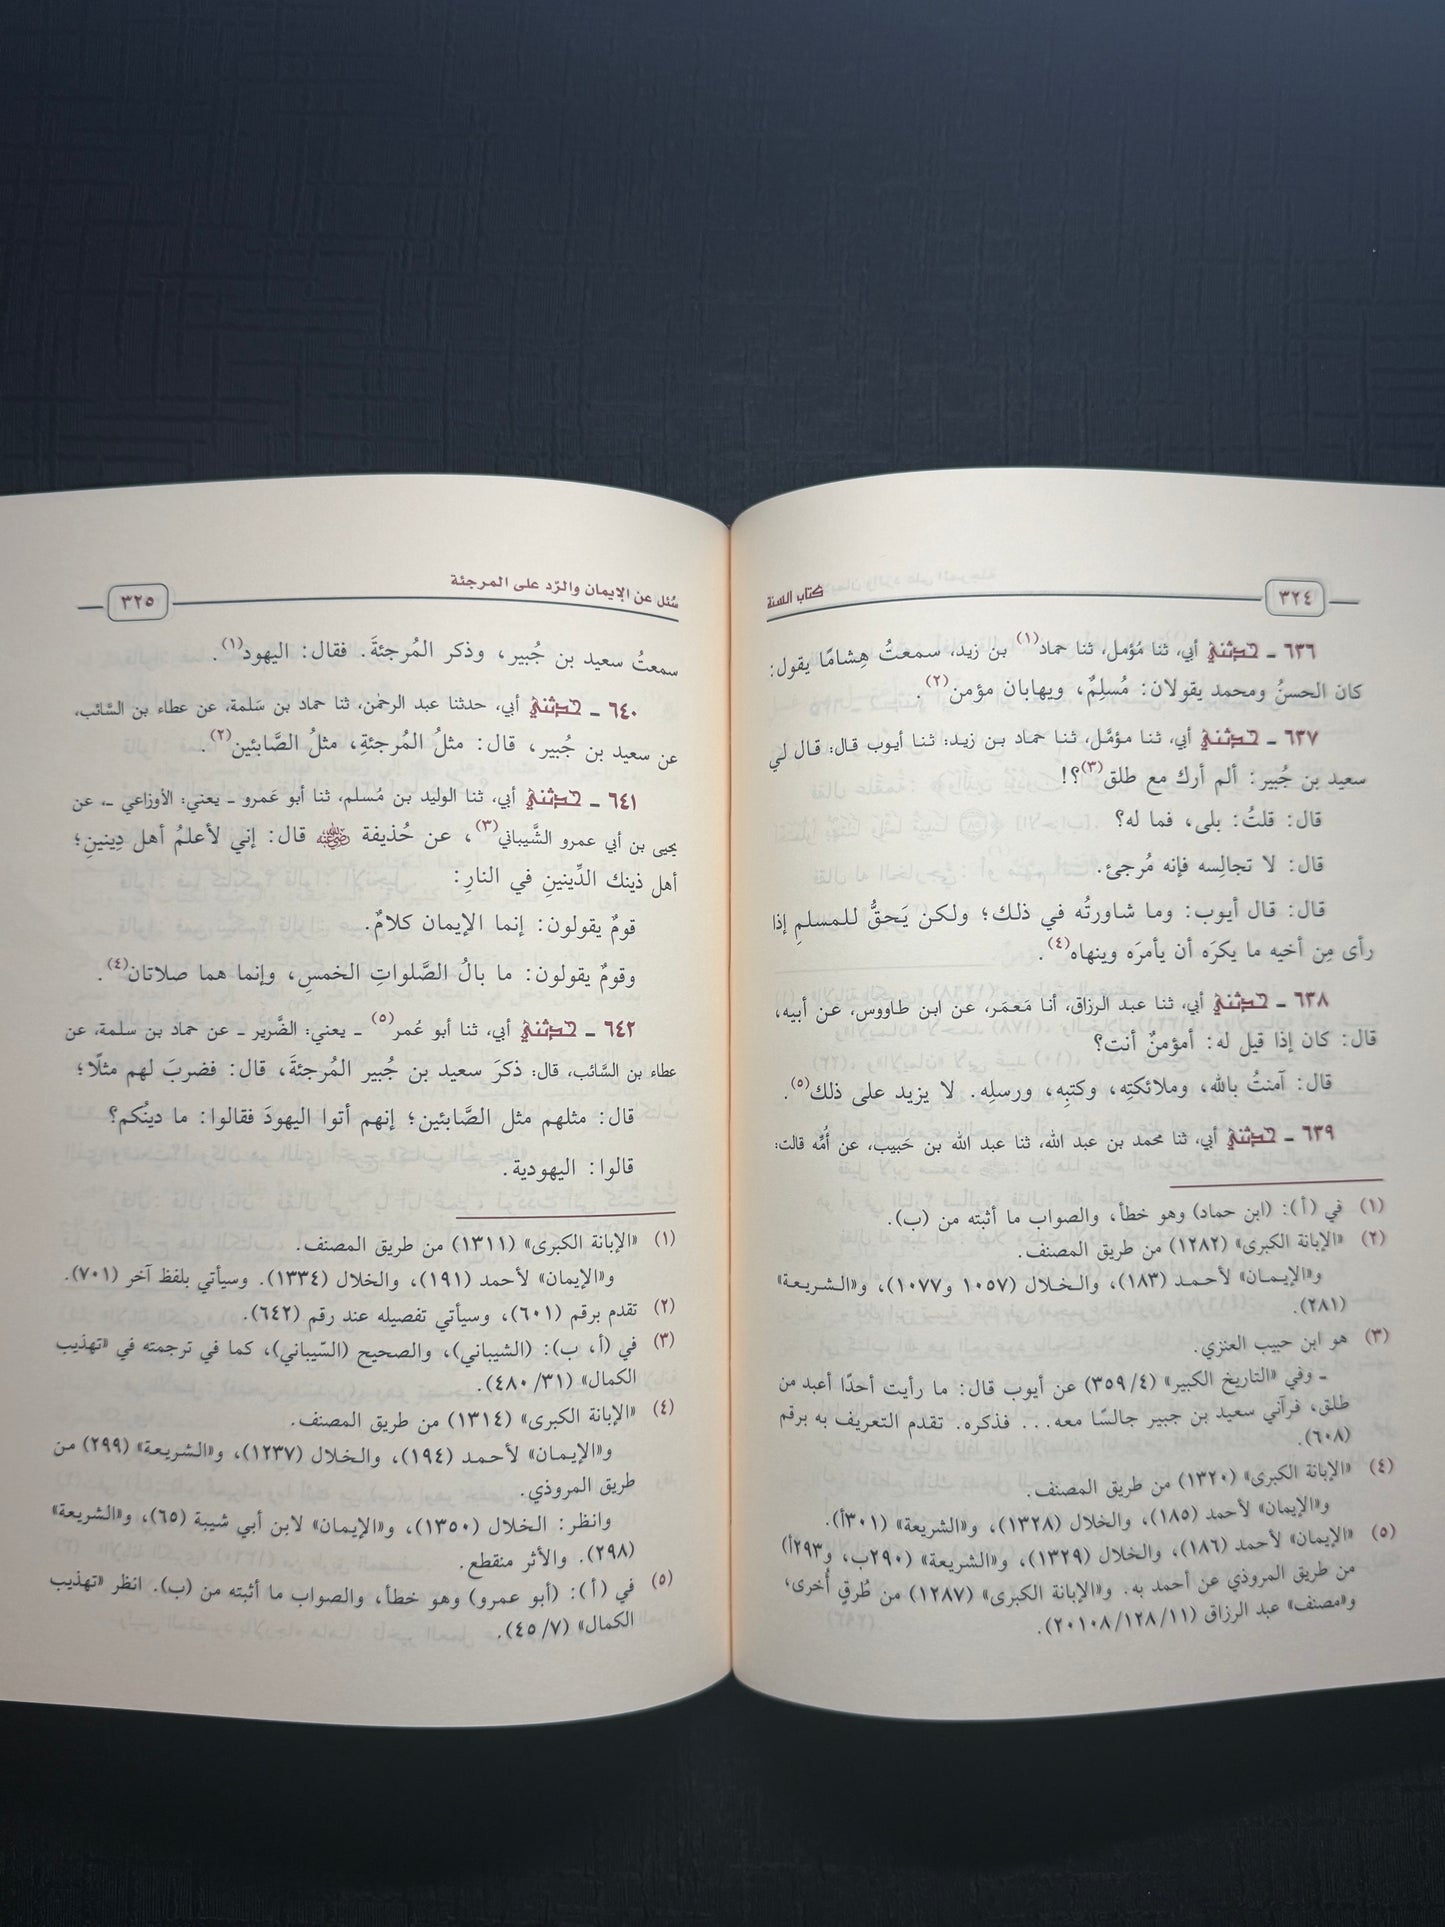 ٣٢٤
كتاب السنة
٦٣٦ ـ حدثني أبي، ثنا مُؤمل، ثنا حماد(١) بن زيد، سمعتُ هِشامًا يقول:
كان الحسنُ ومحمد يقولان: مُسلِمٌ، ويهابان مؤمن(٢).
٦٣٧ ـ حدثني أبي، ثنا مؤمَّل، ثنا حماد بن زيد: ثنا أيوب قال: قال لي
سعيد بن جُبير: ألم أرك مع طلق(٣)؟!
قال: قلتُ: بلى، فما له؟
قال: لا تجالِسه فإنه مُرجئ.
قال: قال أيوب: وما شاورتُه في ذلك؛ ولكن يَحقُّ للمسلمِ إذا
رأى مِن أخيه ما يكرَه أن يأمرَه وينهاه(٤).
٦٣٨ ـ حدثني أبي، ثنا عبد الرزاق، أنا مَعمَر، عن ابن طاووس، عن أبيه،
قال: كان إذا قيل له: أمؤمنٌ أنت؟
قال: آمنتُ بالله، وملائكتِه، وكتبِه، ورسلِه. لا يزيد على ذلك(٥).
٦٣٩ ـ حدثني أبي، ثنا محمد بن عبد الله، ثنا عبد الله بن حَبيب، عن أُمِّه قالت:
(١) في (أ): (ابن حماد) وهو خطأ، والصواب ما أثبته من (ب).
(٢) «الإبانة الكبرى» (١٢٨٢) من طريق المصنف.
و«الإيمان» لأحمد (١٨٣)، والخلال (١٠٥٧ و١٠٧٧)، و«الشريعة»
(٢٨١).
(٣) هو ابن حبيب العنزي.
ـ وفي «التاريخ الكبير» (٣٥٩/٤) عن أيوب قال: ما رأيت أحدًا أعبد من
طلق، فرآني سعيد بن جبير جالسًا معه... فذكره. تقدم التعريف به برقم
(٦٠٨).
(٤) «الإبانة الكبرى» (١٣٢٠) من طريق المصنف.
و«الإيمان» لأحمد (١٨٥)، والخلال (١٣٢٨)، و«الشريعة» (٣٠١أ).
(٥) «الإيمان» لأحمد (١٨٦)، والخلال (١٣٢٩)، و«الشريعة» (٢٩٠ب، و٢٩٣أ)
من طريق المروذي عن أحمد به. و«الإبانة الكبرى» (١٢٨٧) من طُرقٍ أُخرى،
و«مصنف» عبد الرزاق (٢٠١٠٨/١٢٨/١١).
سُئل عن الإيمان والرّد على المرجئة
٣٢٥
سمعتُ سعيد بن جُبير، وذكر المُرجئةَ. فقال: اليهود(١).
٦٤٠ ـ حدثني أبي، حدثنا عبد الرحمٰن، ثنا حماد بن سَلمة، عن عطاء بن السَّائب،
عن سعيد بن جُبير، قال: مثلُ المُرجئةِ، مثلُ الصَّابئين(٢).
٦٤١ ـ حدثني أبي، ثنا الوليد بن مُسلم، ثنا أبو عَمرو ـ يعني: الأوزاعي ـ، عن
يحيى بن أبي عمرو الشَّيباني(٣)، عن حُذيفة رضي الله عنه قال: إني لأعلمُ أهل دِينينِ؛
أهل ذينك الدِّينينِ في النارِ:
قومٌ يقولون: إنما الإيمان كلامٌ.
وقومٌ يقولون: ما بالُ الصَّلواتِ الخمسِ، وإنما هما صلاتان(٤).
٦٤٢ ـ حدثني أبي، ثنا أبو عُمر(٥) ـ يعني: الضَّرير ـ عن حماد بن سلمة، عن
عطاء بن السَّائب، قال: ذكرَ سعيد بن جُبير المُرجئةَ، قال: فضربَ لهم مثلًا؛
قال: مثلهم مثل الصَّابئين؛ إنهم أتوا اليهودَ فقالوا: ما دينُكم؟
قالوا: اليهودية.
(١) «الإبانة الكبرى» (١٣١١) من طريق المصنف.
و«الإيمان» لأحمد (١٩١)، والخلال (١٣٣٤). وسيأتي بلفظ آخر (٧٠١).
(٢) تقدم برقم (٦٠١)، وسيأتي تفصيله عند رقم (٦٤٢).
(٣) في (أ، ب): (الشيباني)، والصحيح (السّيباني)، كما في ترجمته في «تهذيب
الكمال» (٤٨٠/٣١).
(٤) «الإبانة الكبرى» (١٣١٤) من طريق المصنف.
و«الإيمان» لأحمد (١٩٤)، والخلال (١٢٣٧)، و«الشريعة» (٢٩٩) من
طريق المروذي.
وانظر: الخلال (١٣٥٠)، و«الإيمان» لابن أبي شيبة (٦٥)، و«الشريعة»
(٢٩٨). والأثر منقطع.
(٥) في (أ): (أبو عمرو) وهو خطأ، والصواب ما أثبته من (ب). انظر «تهذيب
الكمال» (٤٥/٧).